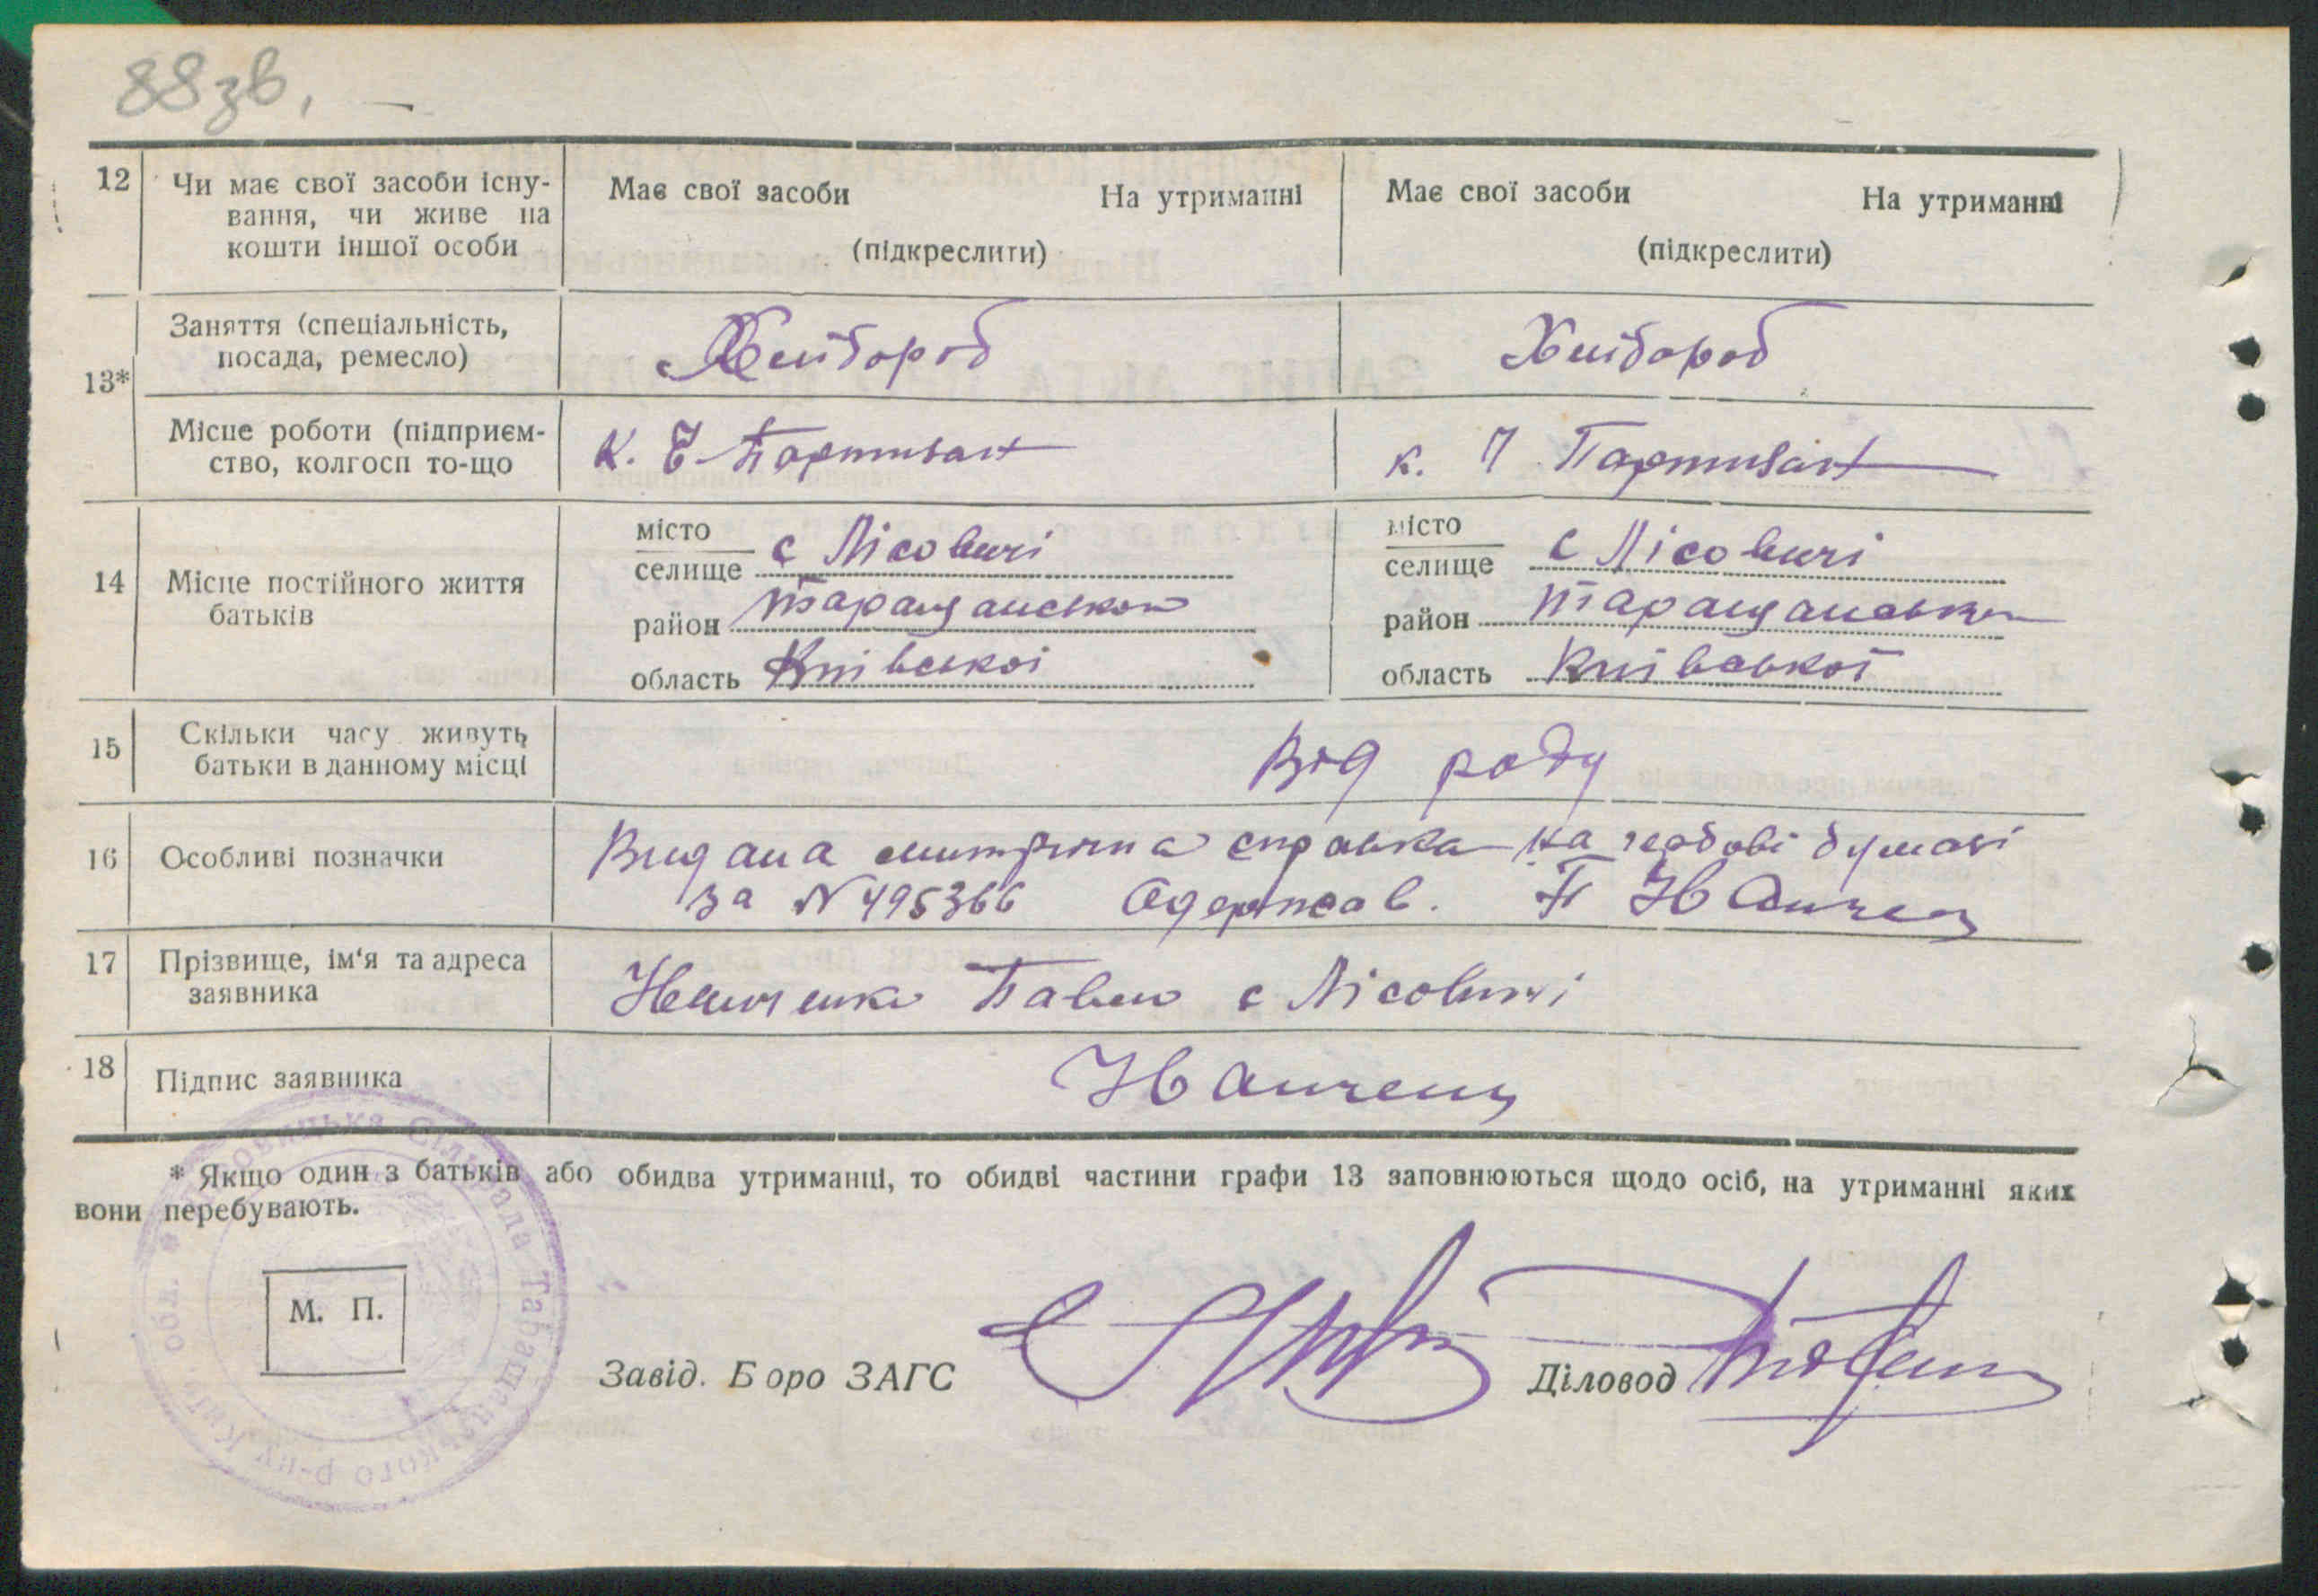 88зв.
12 Чи має свої засоби існу-
вання, чи живе на
кошти іншої особи
Має свої засоби На утриманні
(підкреслити)
Має свої засоби На утриманні
(підкреслити)
13*
Заняття (спеціальність,
посада, ремесло)
Хлібороб
Хлібороб
Місце роботи (підприєм-
ство, колгосп то-що
к. Ч Партизан
к. Ч Партизан
14 Місце постійного життя
батьків
місто
селище с Лісовичі
район Таращанського
область Київської
місто
селище с Лісовичі
район Таращанського
область Київської
15 Скільки часу живуть
батьки в данному місці
Від роду
16 Особливі позначки
Видана метрична справка на гербові бумазі
за № 495366 Одержав. П
17 Прізвище, ім'я та адреса
заявника
Павло с Лісовичі
18 Підпис заявника
* Якщо один з батьків або обидва утриманці, то обидві частини графи 13 заповнюються щодо осіб, на утриманні яких
вони перебувають.
М. П.
Завід. Бюро ЗАГС
Діловод
Сільрада Таращанського р-ну Київ. обл.